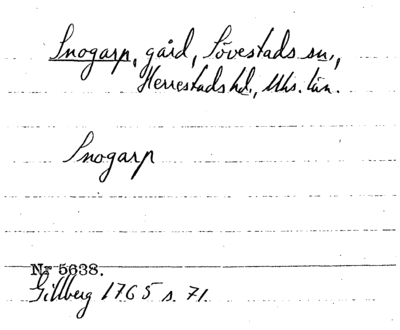 Snogarp, gård, Sövestads sn.,
Herrestads hd., Mhs. län.
Snogarp
Nr 5638.
Gillberg 1765 s. 71.